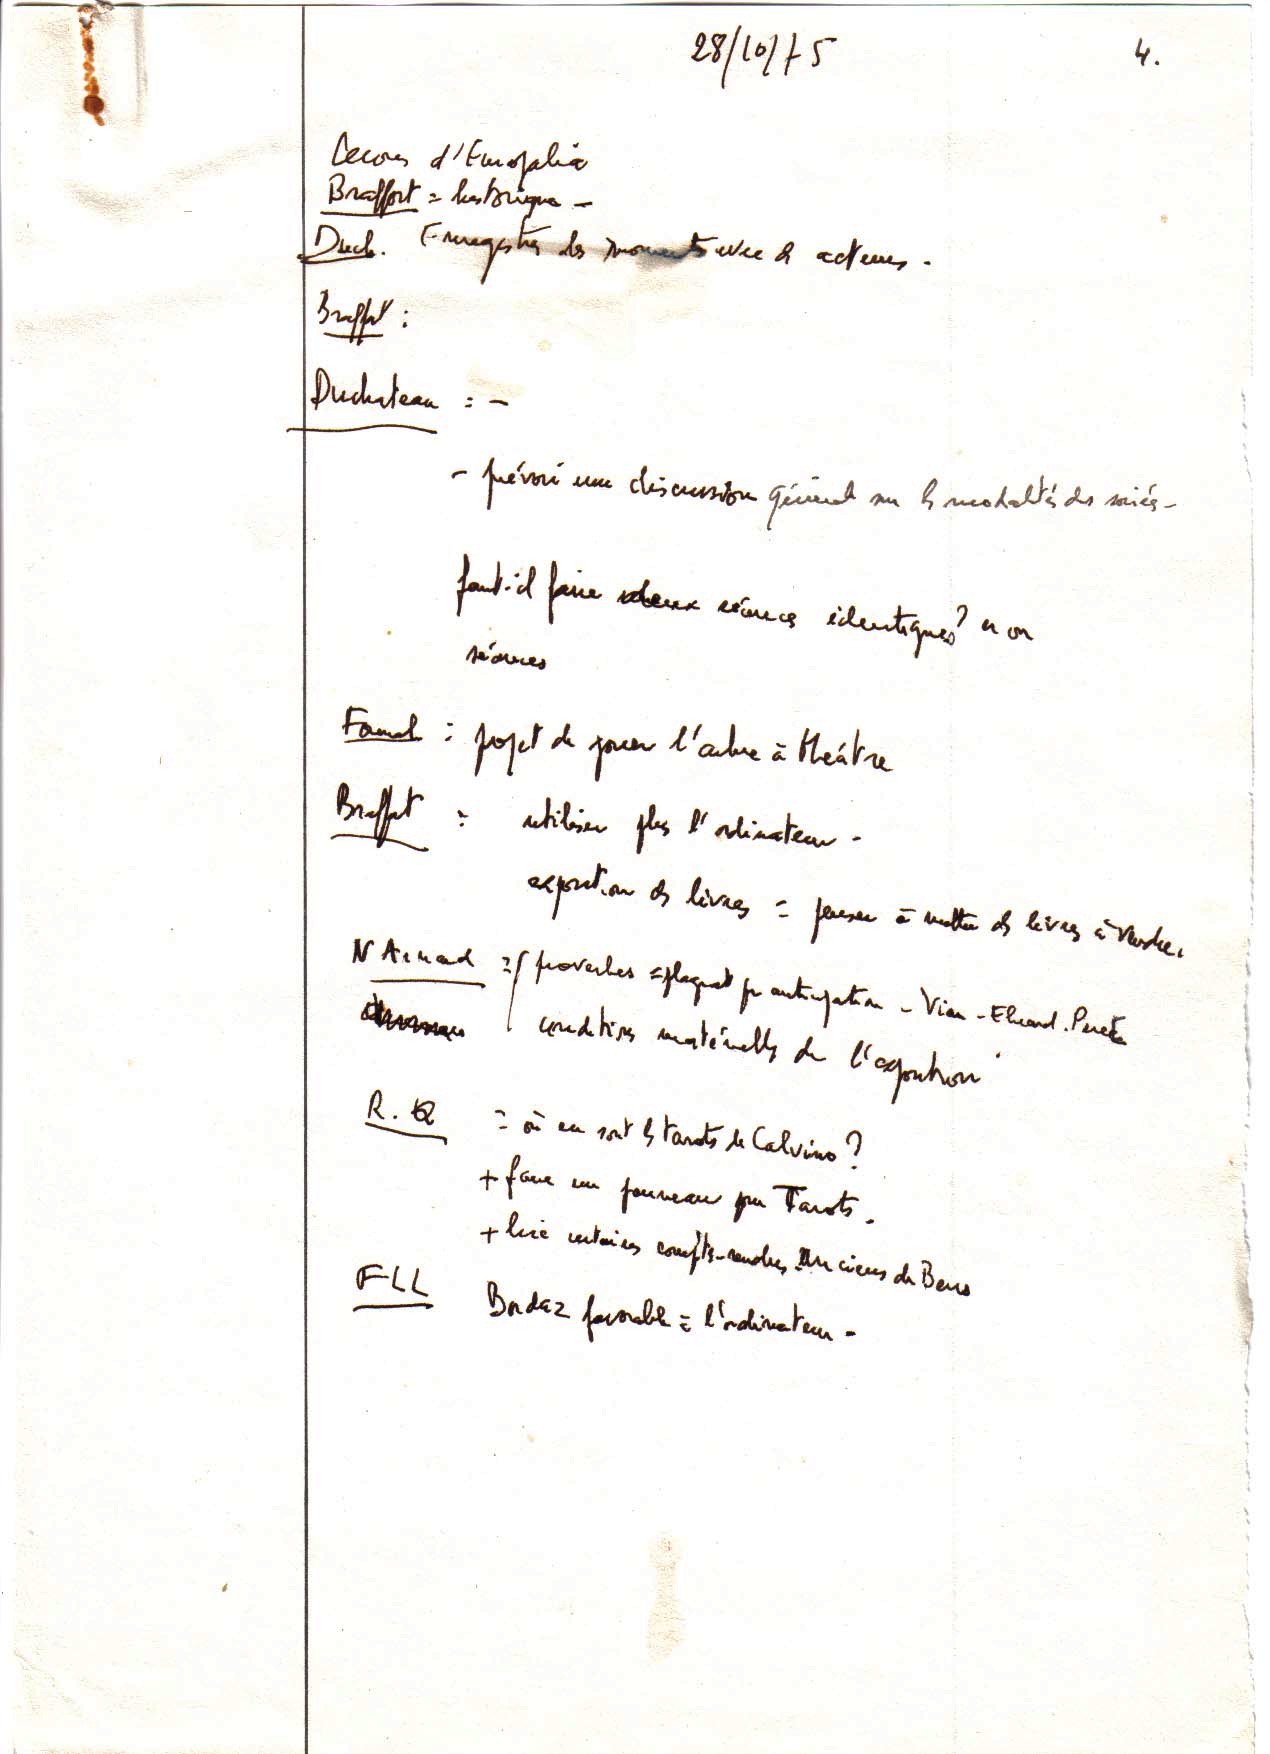 28/10/75
4.
Leçons d'Europalia
Braffort = historique -
Duch. Enregistrer les moments avec d acteurs.
Braffort :
Duchateau = -
- prévoir une discussion générale sur les modalités des soirées -
faut-il faire deux séances identiques? non
séances
Fournel : projet de jouer l'arbre à théâtre
Braffort = utiliser plus l'ordinateur -
exposition de livres = penser à mettre des livres à vendre.
N Arnaud = proverbes = plagiat par anticipation - Vian - Eluard. Péret
conditions matérielles de l'exposition
R. Q = où en sont les tarots de Calvino?
+ faire un panneau pour Tarots.
+ lire certains compte-rendus anciens de Bens
FLL Bordaz favorable = l'ordinateur -